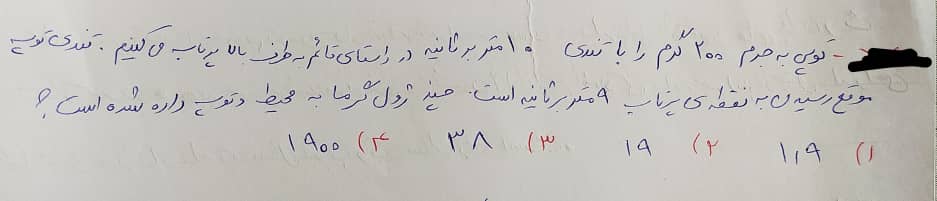 - توپی به جرم ۲۰۰ گرم را با تندی ۱۰ متر بر ثانیه در راستای قائم به طرف بالا پرتاب می کنیم . تندی توپ
موقع رسیدن به نقطه ی پرتاب ۹ متر بر ثانیه است . چند ژول گرما به محیط و توپ داده شده است ؟
۱) ۱,۹ ۲) ۱۹ ۳) ۳۸ ۴) ۱۹۰۰